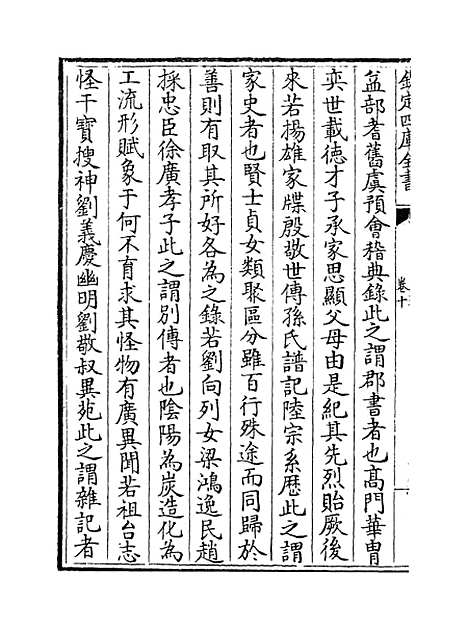 欽定四庫全書
卷十
益部耆舊虞預會稽典錄此之謂郡書者也髙門華胄
奕世載徳才子承家思顯父母由是紀其先烈貽厥後
來若揚雄家牒殷敬世傳孫氏譜記陸宗系厯此之謂
家史者也賢士貞女類聚區分雖百行殊途而同歸於
善則有取其所好各為之錄若劉向列女梁鴻逸民趙
採忠臣徐廣孝子此之謂别傳者也陰陽為炭造化為
工流形賦象于何不育求其怪物有廣異聞若祖台志
怪干寳搜神劉義慶幽明劉敬叔異苑此之謂雜記者